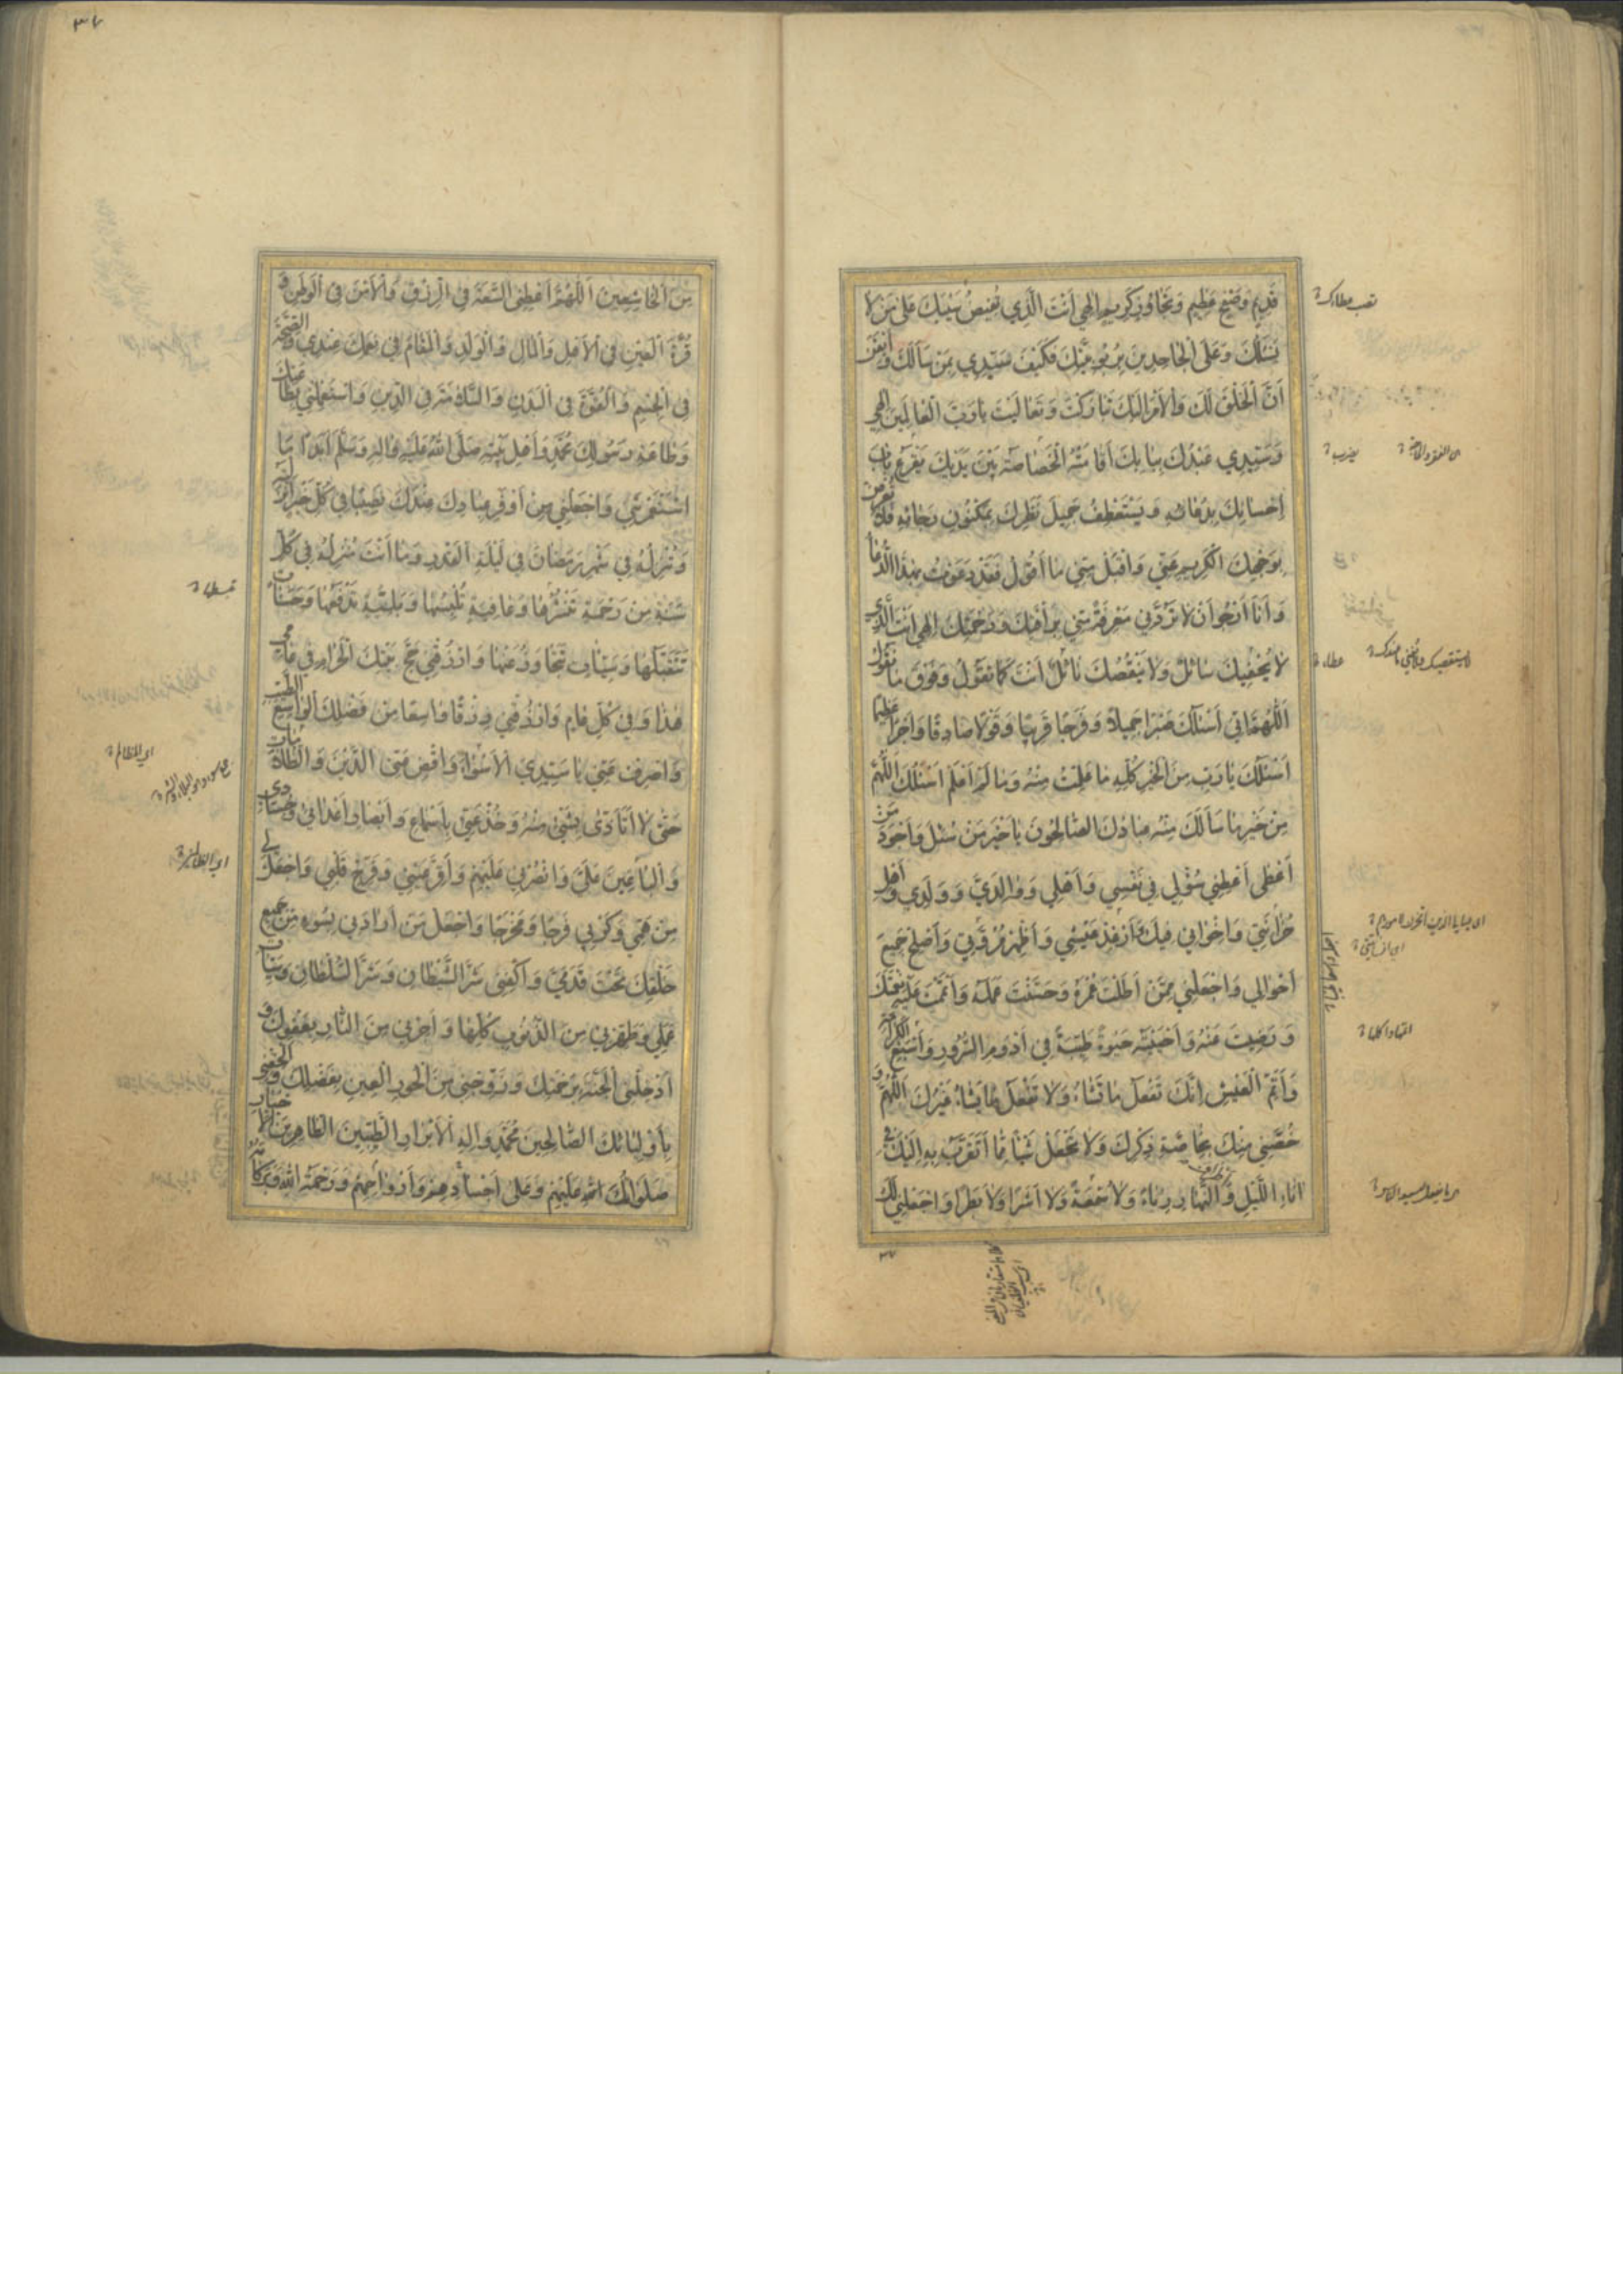 قَدِيمٍ وَصَفْحٍ عَظِيمٍ وَتَجَاوُزٍ كَرِيمٍ اِلٰهِي اَنْتَ الَّذِي تُفِيضُ سَيْبَكَ عَلٰى مَنْ لَا
يَسْئَلُكَ وَعَلَى الْجَاحِدِينَ بِرُبُوبِيَّتِكَ فَكَيْفَ سَيِّدِي بِمَنْ سَأَلَكَ وَاَيْقَنَ
اَنَّ الْخَلْقَ لَكَ وَالْاَمْرَ اِلَيْكَ تَبَارَكْتَ وَتَعَالَيْتَ يَا رَبَّ الْعَالَمِينَ اِلٰهِي
وَسَيِّدِي عَبْدُكَ بِبَابِكَ اَقَامَتْهُ الْخَصَاصَةُ بَيْنَ يَدَيْكَ يَقْرَعُ بَابَ
اِحْسَانِكَ بِدُعَائِهِ وَيَسْتَعْطِفُ جَمِيلَ نَظَرِكَ بِمَكْنُونِ رَجَائِهِ فَلَا تُعْرِضْ
بِوَجْهِكَ الْكَرِيمِ عَنِّي وَاقْبَلْ مِنِّي مَا اَقُولُ فَقَدْ دَعَوْتُ بِهٰذَا الدُّعَاءِ
وَاَنَا اَرْجُو اَنْ لَا تَرُدَّنِي مَعْرِفَةً مِنِّي بِرَأْفَتِكَ وَرَحْمَتِكَ اِلٰهِي اَنْتَ الَّذِي
لَا يُحْفِيكَ سَائِلٌ وَلَا يَنْقُصُكَ نَائِلٌ اَنْتَ كَمَا تَقُولُ وَفَوْقَ مَا نَقُولُ
اَللّٰهُمَّ اِنِّي اَسْئَلُكَ صَبْرًا جَمِيلًا وَفَرَجًا قَرِيبًا وَقَوْلًا صَادِقًا وَاَجْرًا عَظِيمًا
اَسْئَلُكَ يَا رَبِّ مِنَ الْخَيْرِ كُلِّهِ مَا عَلِمْتُ مِنْهُ وَمَا لَمْ اَعْلَمْ اَسْئَلُكَ اللّٰهُمَّ
مِنْ خَيْرِ مَا سَأَلَكَ مِنْهُ عِبَادُكَ الصَّالِحُونَ يَا خَيْرَ مَنْ سُئِلَ وَاَجْوَدَ مَنْ
اَعْطٰى اَعْطِنِي سُؤْلِي فِي نَفْسِي وَاَهْلِي وَوَالِدَيَّ وَوَلَدِي وَاَهْلِ
حُزَانَتِي وَاِخْوَانِي فِيكَ وَاَرْغِدْ عَيْشِي وَاَظْهِرْ مُرُوَّتِي وَاَصْلِحْ جَمِيعَ
اَحْوَالِي وَاجْعَلْنِي مِمَّنْ اَطَلْتَ عُمْرَهُ وَحَسَّنْتَ عَمَلَهُ وَاَتْمَمْتَ عَلَيْهِ نِعْمَتَكَ
وَرَضِيتَ عَنْهُ وَاَحْيَيْتَهُ حَيٰوةً طَيِّبَةً فِي اَدْوَمِ السُّرُورِ وَاَسْبَغِ الْكَرَامَةِ
وَاَتَمِّ الْعَيْشِ اِنَّكَ تَفْعَلُ مَا تَشَاءُ وَلَا يَفْعَلُ مَا يَشَاءُ غَيْرُكَ اَللّٰهُمَّ وَ
خُصَّنِي مِنْكَ بِخَاصَّةِ ذِكْرِكَ وَلَا تَجْعَلْ شَيْئًا مِمَّا اَتَقَرَّبُ بِهِ اِلَيْكَ فِي
اٰنَاءِ اللَّيْلِ وَاَطْرَافِ النَّهَارِ رِيَاءً وَلَا سُمْعَةً وَلَا اَشَرًا وَلَا بَطَرًا وَاجْعَلْنِي لَكَ
٣٧
مِنَ الْخَاشِعِينَ اَللّٰهُمَّ اَعْطِنِي السَّعَةَ فِي الرِّزْقِ وَالْاَمْنَ فِي الْوَطَنِ وَ
قُرَّةَ الْعَيْنِ فِي الْاَهْلِ وَالْمَالِ وَالْوَلَدِ وَالْمُقَامَ فِي نِعَمِكَ عِنْدِي وَالصِّحَّةَ
فِي الْجِسْمِ وَالْقُوَّةَ فِي الْبَدَنِ وَالسَّلَامَةَ فِي الدِّينِ وَاسْتَعْمِلْنِي بِطَاعَتِكَ
وَطَاعَةِ رَسُولِكَ مُحَمَّدٍ وَاَهْلِ بَيْتِهِ صَلَّى اللّٰهُ عَلَيْهِ وَاٰلِهِ وَسَلَّمَ اَبَدًا مَا
اسْتَعْمَرْتَنِي وَاجْعَلْنِي مِنْ اَوْفَرِ عِبَادِكَ عِنْدَكَ نَصِيبًا فِي كُلِّ خَيْرٍ اَنْزَلْتَهُ
وَتُنْزِلُهُ فِي شَهْرِ رَمَضَانَ فِي لَيْلَةِ الْقَدْرِ وَمَا اَنْتَ مُنْزِلُهُ فِي كُلِّ
سَنَةٍ مِنْ رَحْمَةٍ تَنْشُرُهَا وَعَافِيَةٍ تُلْبِسُهَا وَبَلِيَّةٍ تَدْفَعُهَا وَحَسَنَاتٍ
تَتَقَبَّلُهَا وَسَيِّئَاتٍ تَتَجَاوَزُ عَنْهَا وَارْزُقْنِي حَجَّ بَيْتِكَ الْحَرَامِ فِي عَامِي
هٰذَا وَفِي كُلِّ عَامٍ وَارْزُقْنِي رِزْقًا وَاسِعًا مِنْ فَضْلِكَ الْوَاسِعِ الطَّيِّبِ
وَاصْرِفْ عَنِّي يَا سَيِّدِي الْاَسْوَاءَ وَاقْضِ عَنِّي الدَّيْنَ وَالظُّلَامَاتِ
حَتّٰى لَا اَتَاَذّٰى بِشَيْءٍ مِنْهُ وَخُذْ عَنِّي بِاَسْمَاعِ وَاَبْصَارِ اَعْدَائِي وَحُسَّادِي
وَالْبَاغِينَ عَلَيَّ وَانْصُرْنِي عَلَيْهِمْ وَاَقِرَّ عَيْنِي وَفَرِّحْ قَلْبِي وَاجْعَلْ لِي
مِنْ هَمِّي وَكَرْبِي فَرَجًا وَمَخْرَجًا وَاجْعَلْ مَنْ اَرَادَنِي بِسُوءٍ مِنْ جَمِيعِ
خَلْقِكَ تَحْتَ قَدَمَيَّ وَاكْفِنِي شَرَّ الشَّيْطَانِ وَشَرَّ السُّلْطَانِ وَسَيِّئَاتِ
عَمَلِي وَطَهِّرْنِي مِنَ الذُّنُوبِ كُلِّهَا وَاَجِرْنِي مِنَ النَّارِ بِعَفْوِكَ وَ
اَدْخِلْنِي الْجَنَّةَ بِرَحْمَتِكَ وَزَوِّجْنِي مِنَ الْحُورِ الْعِينِ بِفَضْلِكَ وَاَلْحِقْنِي
بِاَوْلِيَائِكَ الصَّالِحِينَ مُحَمَّدٍ وَاٰلِهِ الْاَبْرَارِ الطَّيِّبِينَ الطَّاهِرِينَ الْاَخْيَارِ
صَلَوَاتُكَ عَلَيْهِمْ وَعَلٰى اَجْسَادِهِمْ وَاَرْوَاحِهِمْ وَرَحْمَةُ اللّٰهِ وَبَرَكَاتُهُ